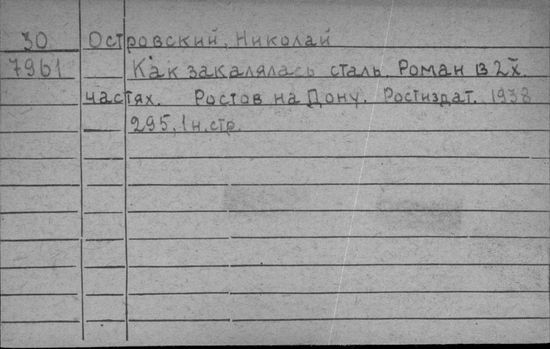 30 Островский, Николай
7961 Как закалялась сталь. Роман в 2х.
частях. Ростов на Дону. Ростиздат. 1938
295, 1 н. стр.